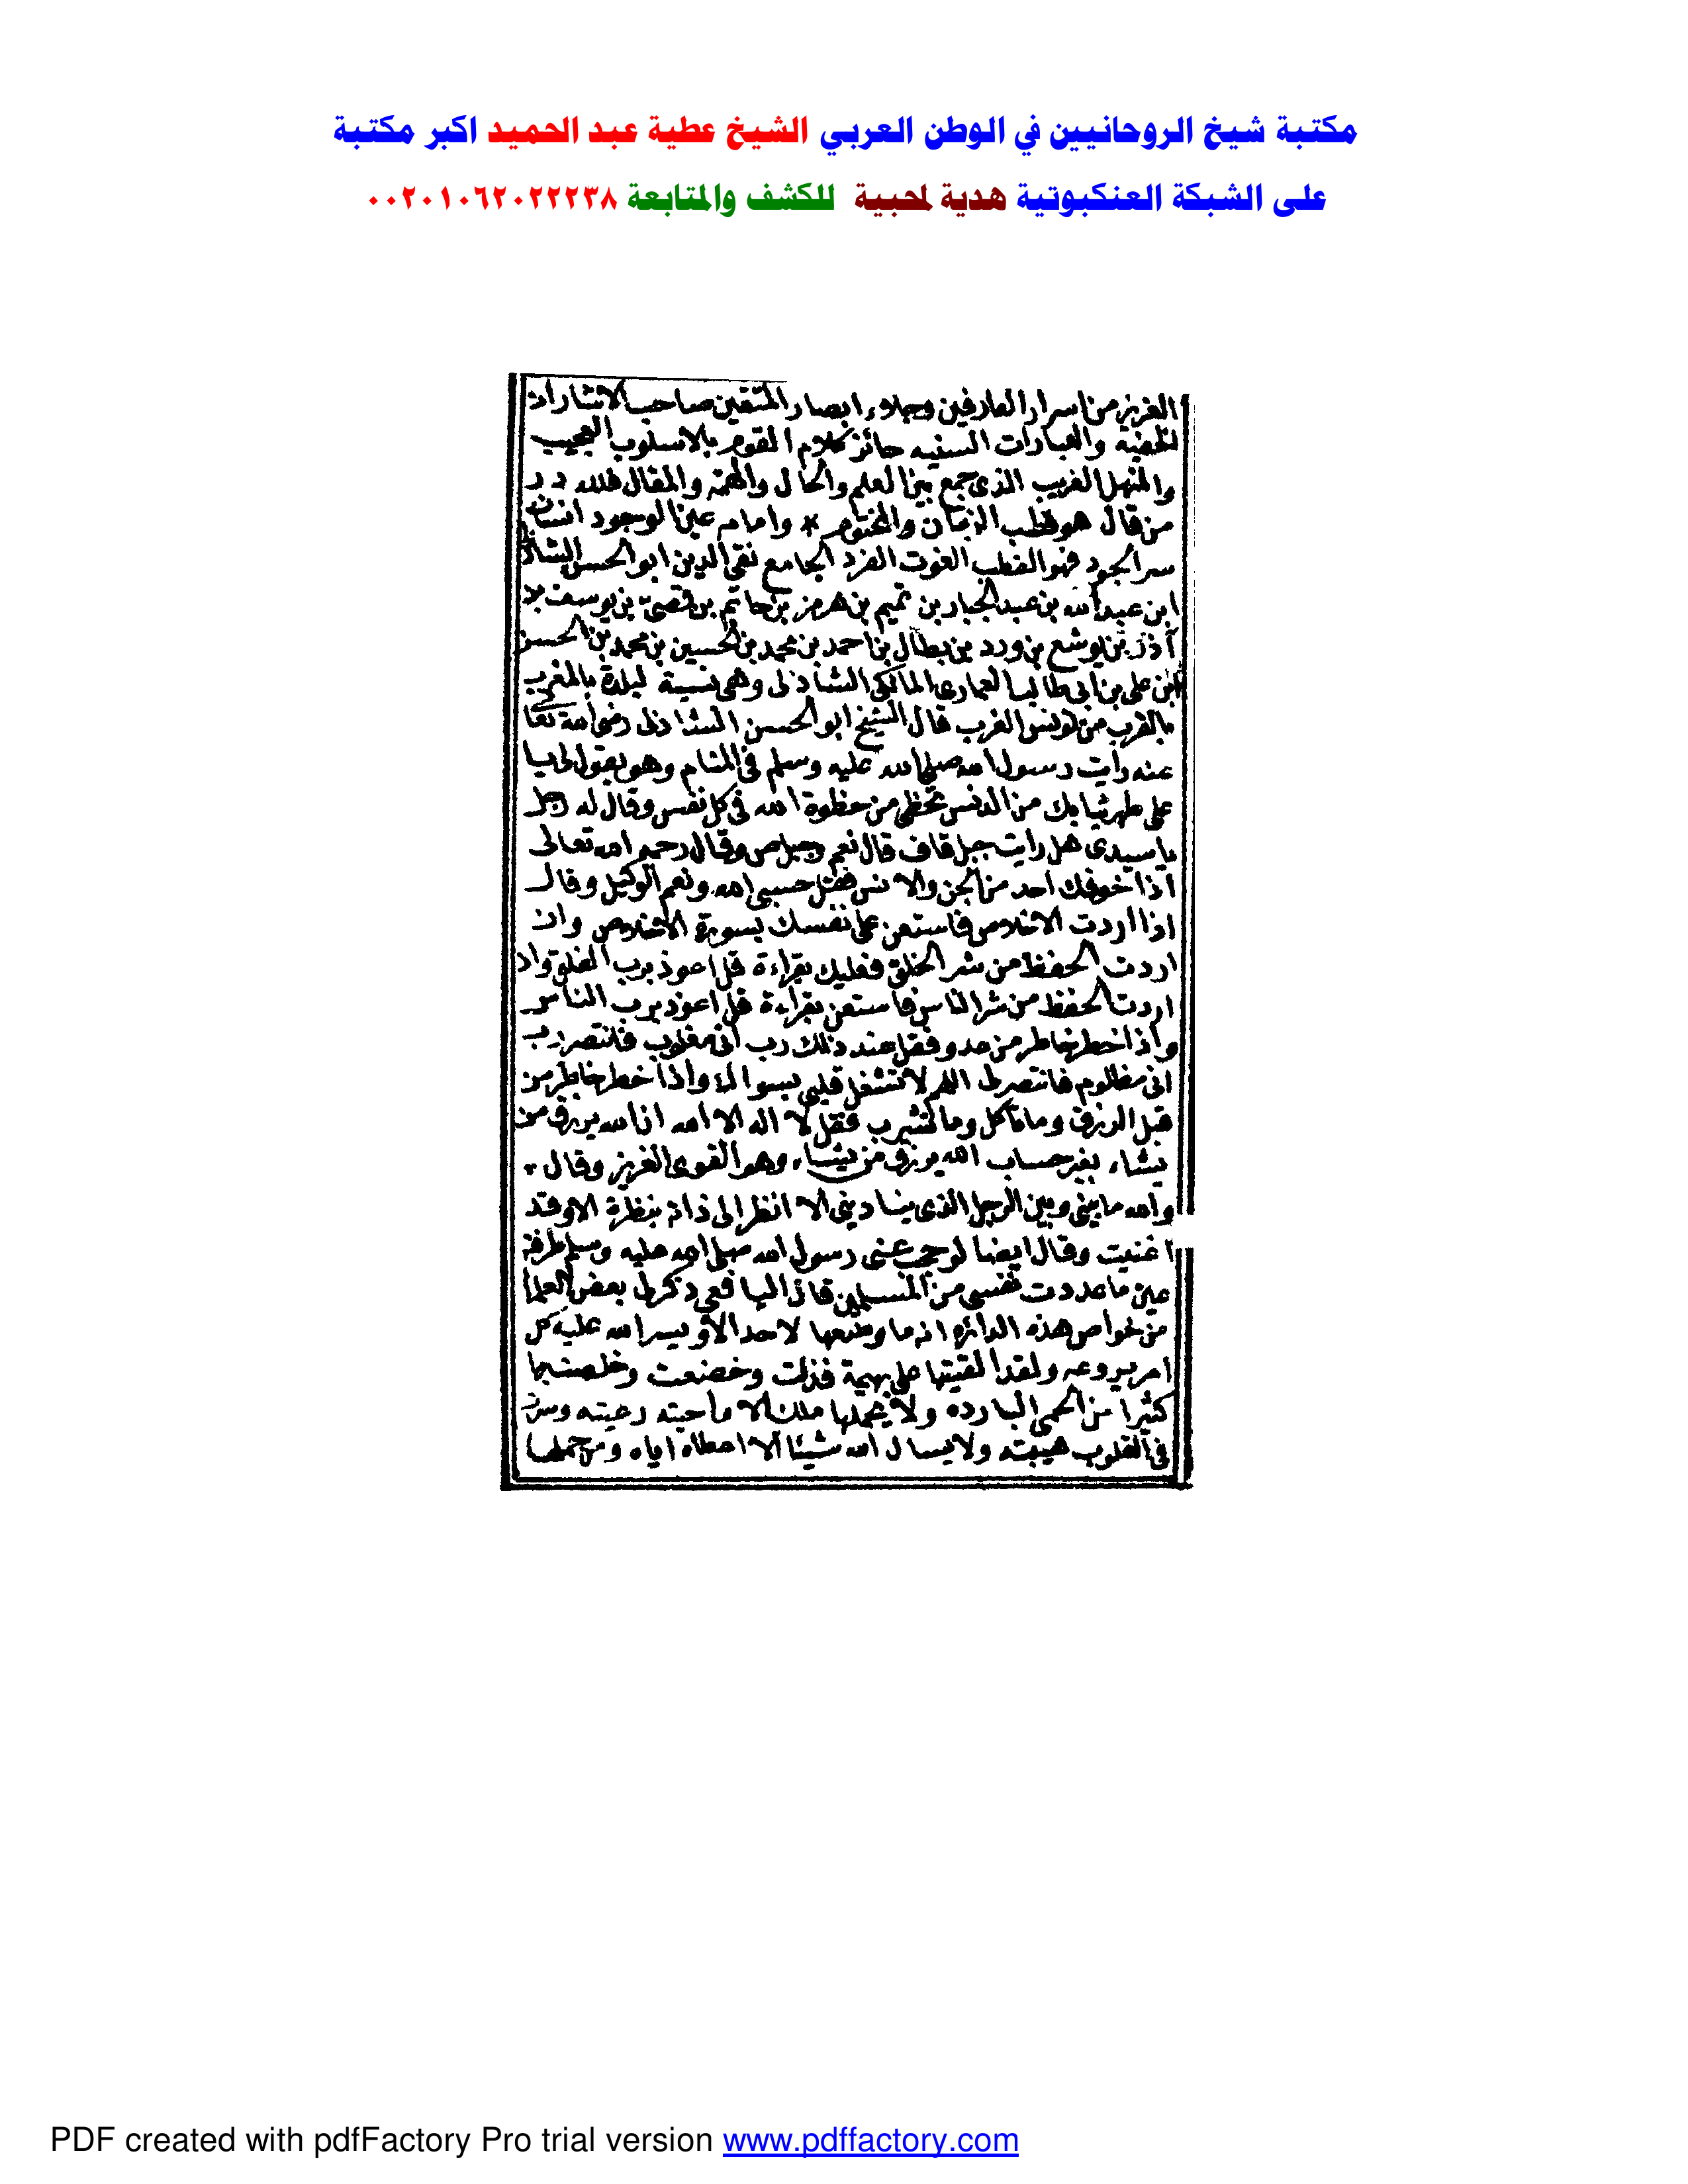 مكتبة شيخ الروحانيين في الوطن العربي الشيخ عطية عبد الحميد اكبر مكتبة
على الشبكة العنكبوتية هدية لمحبية للكشف والمتابعة ٠٠٢٠١٠٦٢٠٢٢٢٣٨
العزيز من اسرار العارفين وجلاء ابصار المتقين صاحب الاشارات
الخفيه والعبارات السنيه حائز كلام القوم بالاسلوب العجيب
والمنهل الغريب الذى جمع بين العلم والحال والهمة والمقال فلله در
من قال هو قطب الزمان والمختوم * وامامه عين الوجود انسان
سر الجود فهو القطب الغوث الفرد الجامع تقى الدين ابو الحسن الشاذلى
ابن عبد الله بن عبد الجبار بن تميم بن هرمز بن حاتم بن قصى بن يوسف
بن يوشع بن ورد بن بطال بن احمد بن محمد بن الحسين بن محمد بن الحسن
ابن على بن ابى طالب الغمارى المالكى الشاذلى وهى نسبة لبلدة بالمغرب
بالقرب من تونس الغرب قال الشيخ ابو الحسن الشاذلى رضى الله تعا
عنه رايت رسول الله صلى الله عليه وسلم فى المنام وهو يقول لى يا
على طهر ثيابك من الدنس تحظى من حظوة الله فى كل نفس وقال له رجل
يا سيدى هل رايت جبل قاف قال نعم وجبل ص وقال رحمه الله تعالى
اذا خوفك احد من الجن والانس فقل حسبى الله ونعم الوكيل وقال
اذا اردت الاخلاص فاستعن على نفسك بسورة الاخلاص وان
اردت الحفظ من شر الخلق فعليك بقراءة قل اعوذ برب الفلق وان
اردت الحفظ من شر الناس فاستعن بقراءة قل اعوذ برب الناس
واذا خطر خاطر من عدو فقل عند ذلك رب انى مغلوب فانتصر رب
انى مظلوم فانتصر لى اللهم لا تشغل قلبى بسواك واذا خطر خاطر من
قبل الرزق وما تاكل وما تشرب فقل لا اله الا الله ان الله يرزق من
يشاء بغير حساب الله يرزق من يشاء وهو القوى العزيز وقال *
والله ما بينى وبين الرجل الذى ينادينى الا انظر الى ذاته بنظرة الا وقد
اغنيت وقال ايضا لو حجب عنى رسول الله صلى الله عليه وسلم طرفة
عين ما عددت نفسى من المسلمين قال اليافعى ذكر لى بعض العلما
من خواص هذه الدائره انه ما وضعها لاحد الا ويسر الله عليه كل
امر يروعه ولقد القيتها على بهيمة فذلت وخضعت وخلصت بها
كثيرا من الحمى البارده ولا يحملها ملك الا واحبته رعيته وسرت
فى القلوب هيبته ولا يسال الله شيئا الا اعطاه اياه ومن حملها
PDF created with pdfFactory Pro trial version www.pdffactory.com